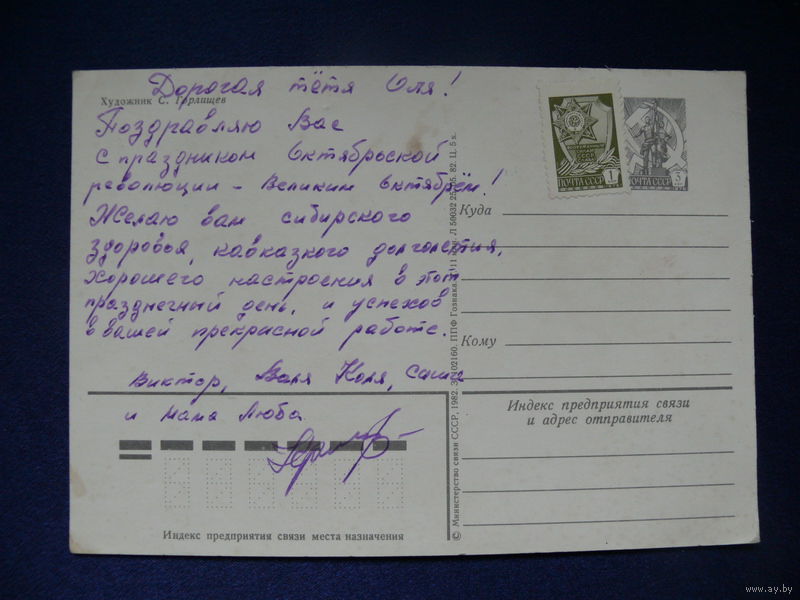 Дорогая тётя Оля!
Художник С. Горлищев
Поздравляю Вас
с праздником Октябрьской
революции – Великим Октябрём!
Желаю вам сибирского
здоровья, кавказкого долголетия,
хорошего настроения в этот
празднечный день, и успехов
в вашей прекрасной работе.
Виктор, Валя Коля, Саша
и мама Люба.
Индекс предприятия связи места назначения
© Министерство связи СССР, 1982. ППФ Гознака.
ПОЧТА СССР 1
ПОЧТА СССР 3
Куда
Кому
Индекс предприятия связи
и адрес отправителя
www.ay.by